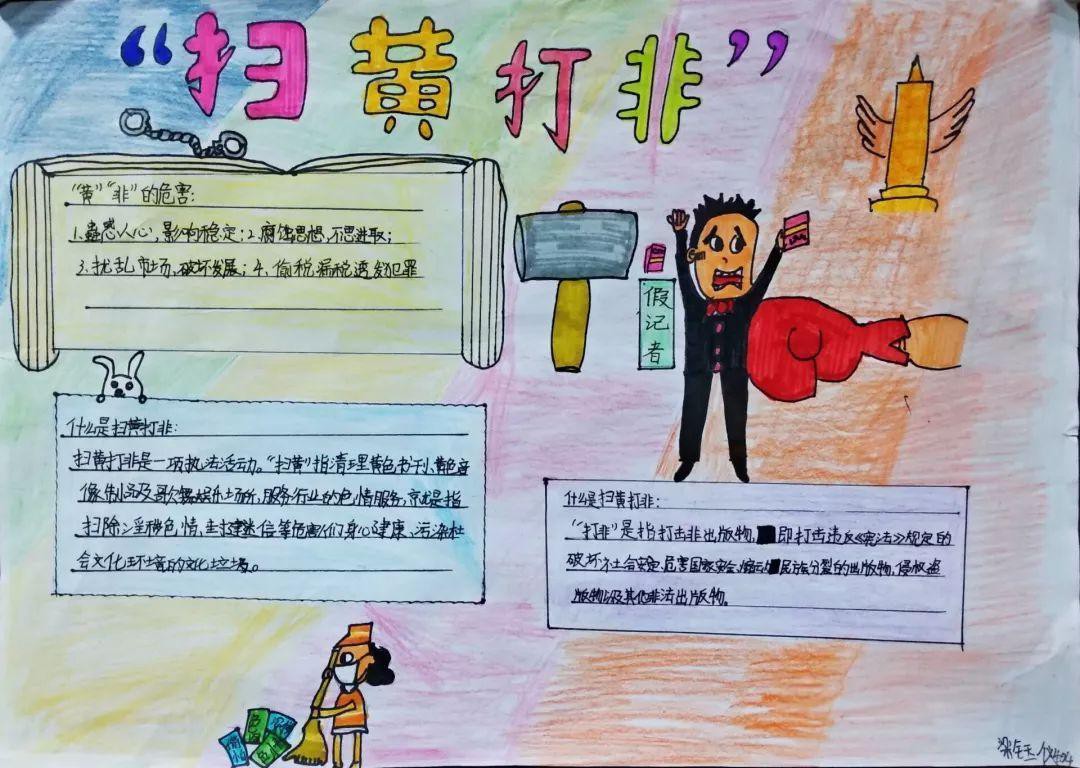 “扫黄打非”
“黄”“非”的危害:
1.蛊惑人心,影响稳定;2.腐蚀思想,不思进取;
3.扰乱市场,破坏发展;4.偷税漏税诱发犯罪
假
记
者
什么是扫黄打非:
扫黄打非是一项执法活动。“扫黄”指清理黄色书刊、黄色音
像制品及歌舞娱乐场所,服务行业的色情服务,就是指
扫除淫秽色情,封建迷信等危害人们身心健康、污染社
会文化环境的文化垃圾。
什么是扫黄打非:
“打非”是指打击非出版物,即打击违反《宪法》规定的
破坏社会安定、危害国家安全、煽动民族分裂的出版物,侵权盗
版物以及其他非法出版物。